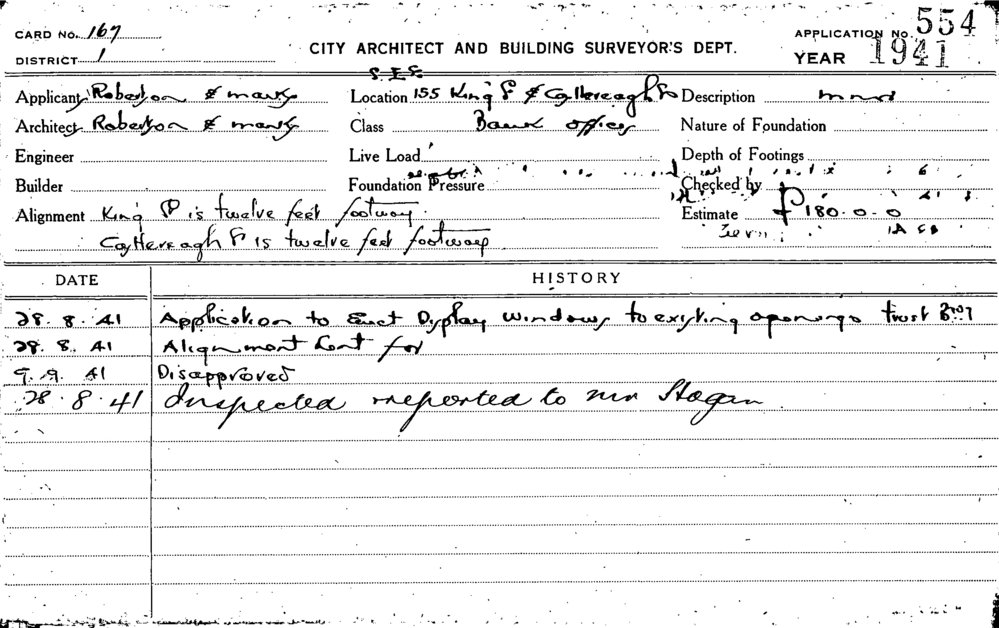 CARD No. 167
APPLICATION No. 554
DISTRICT 1
CITY ARCHITECT AND BUILDING SURVEYOR'S DEPT.
YEAR 1941
S. E. &
Applicant Robertson & marks Location 155 King St & Castlereagh St Description minor
Architect Robertson & marks Class Bank offices Nature of Foundation
Engineer Live Load Depth of Footings
Builder Foundation Pressure Checked by
Alignment King St is twelve feet footway. Estimate £180.0.0
Castlereagh St is twelve feet footway
DATE HISTORY
28. 8. 41 Application to Erect Display windows to existing openings trust
28. 8. 41 Alignment Sent for
9. 9. 41 Disapproved
28. 8. 41 Inspected reported to mr Hogan